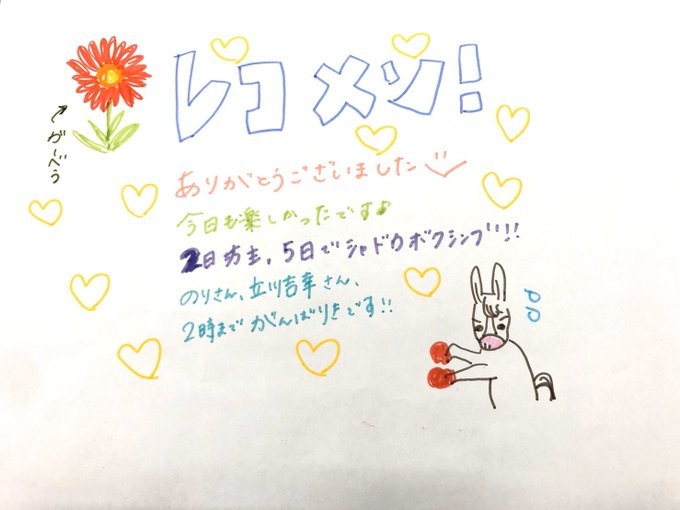 レコメン!
がーべら
ありがとうございました
今日も楽しかったです♪
2日坊主、5日でシャドウボクシング!!
のりさん、立川吉幸さん、
2時までがんばりきです!!